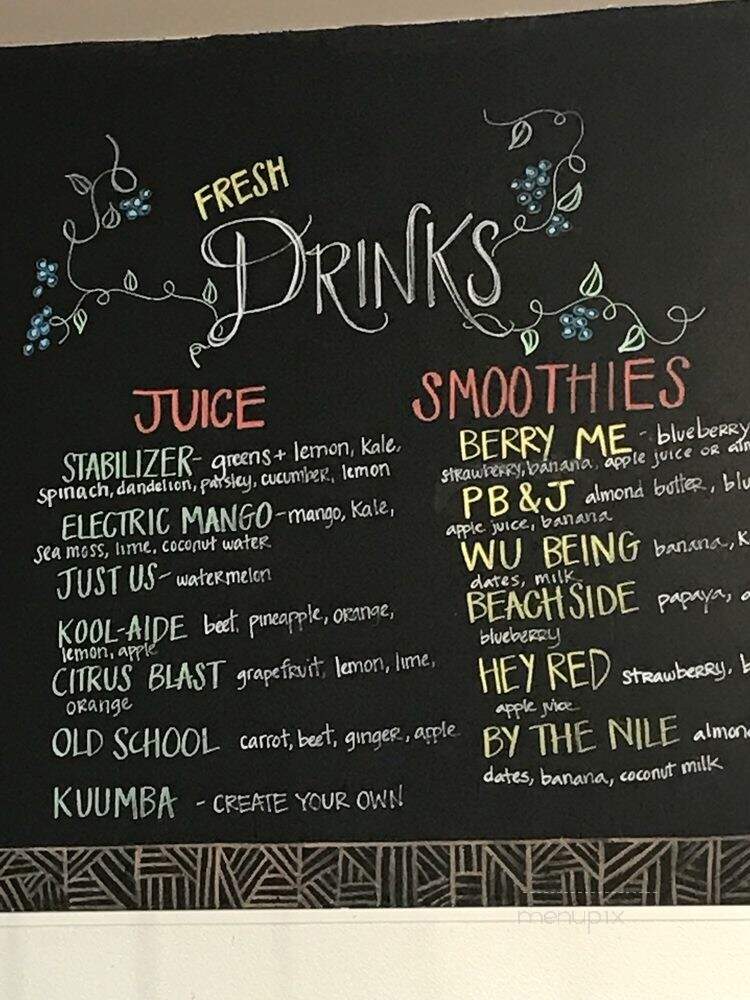 FRESH
DRINKS
JUICE
STABILIZER- greens + lemon, kale,
spinach, dandelion, parsley, cucumber, lemon
ELECTRIC MANGO - mango, kale,
sea moss, lime, coconut water
JUST US - watermelon
KOOL-AIDE beet, pineapple, orange,
lemon, apple
CITRUS BLAST grapefruit, lemon, lime,
orange
OLD SCHOOL carrot, beet, ginger, apple
KUUMBA - CREATE YOUR OWN
SMOOTHIES
BERRY ME - blueberry
strawberry, banana, apple juice or
PB & J almond butter,
apple juice, banana
WU BEING banana,
dates, milk
BEACH SIDE papaya,
blueberry
HEY RED strawberry,
apple juice
BY THE NILE
dates, banana, coconut milk
menupix